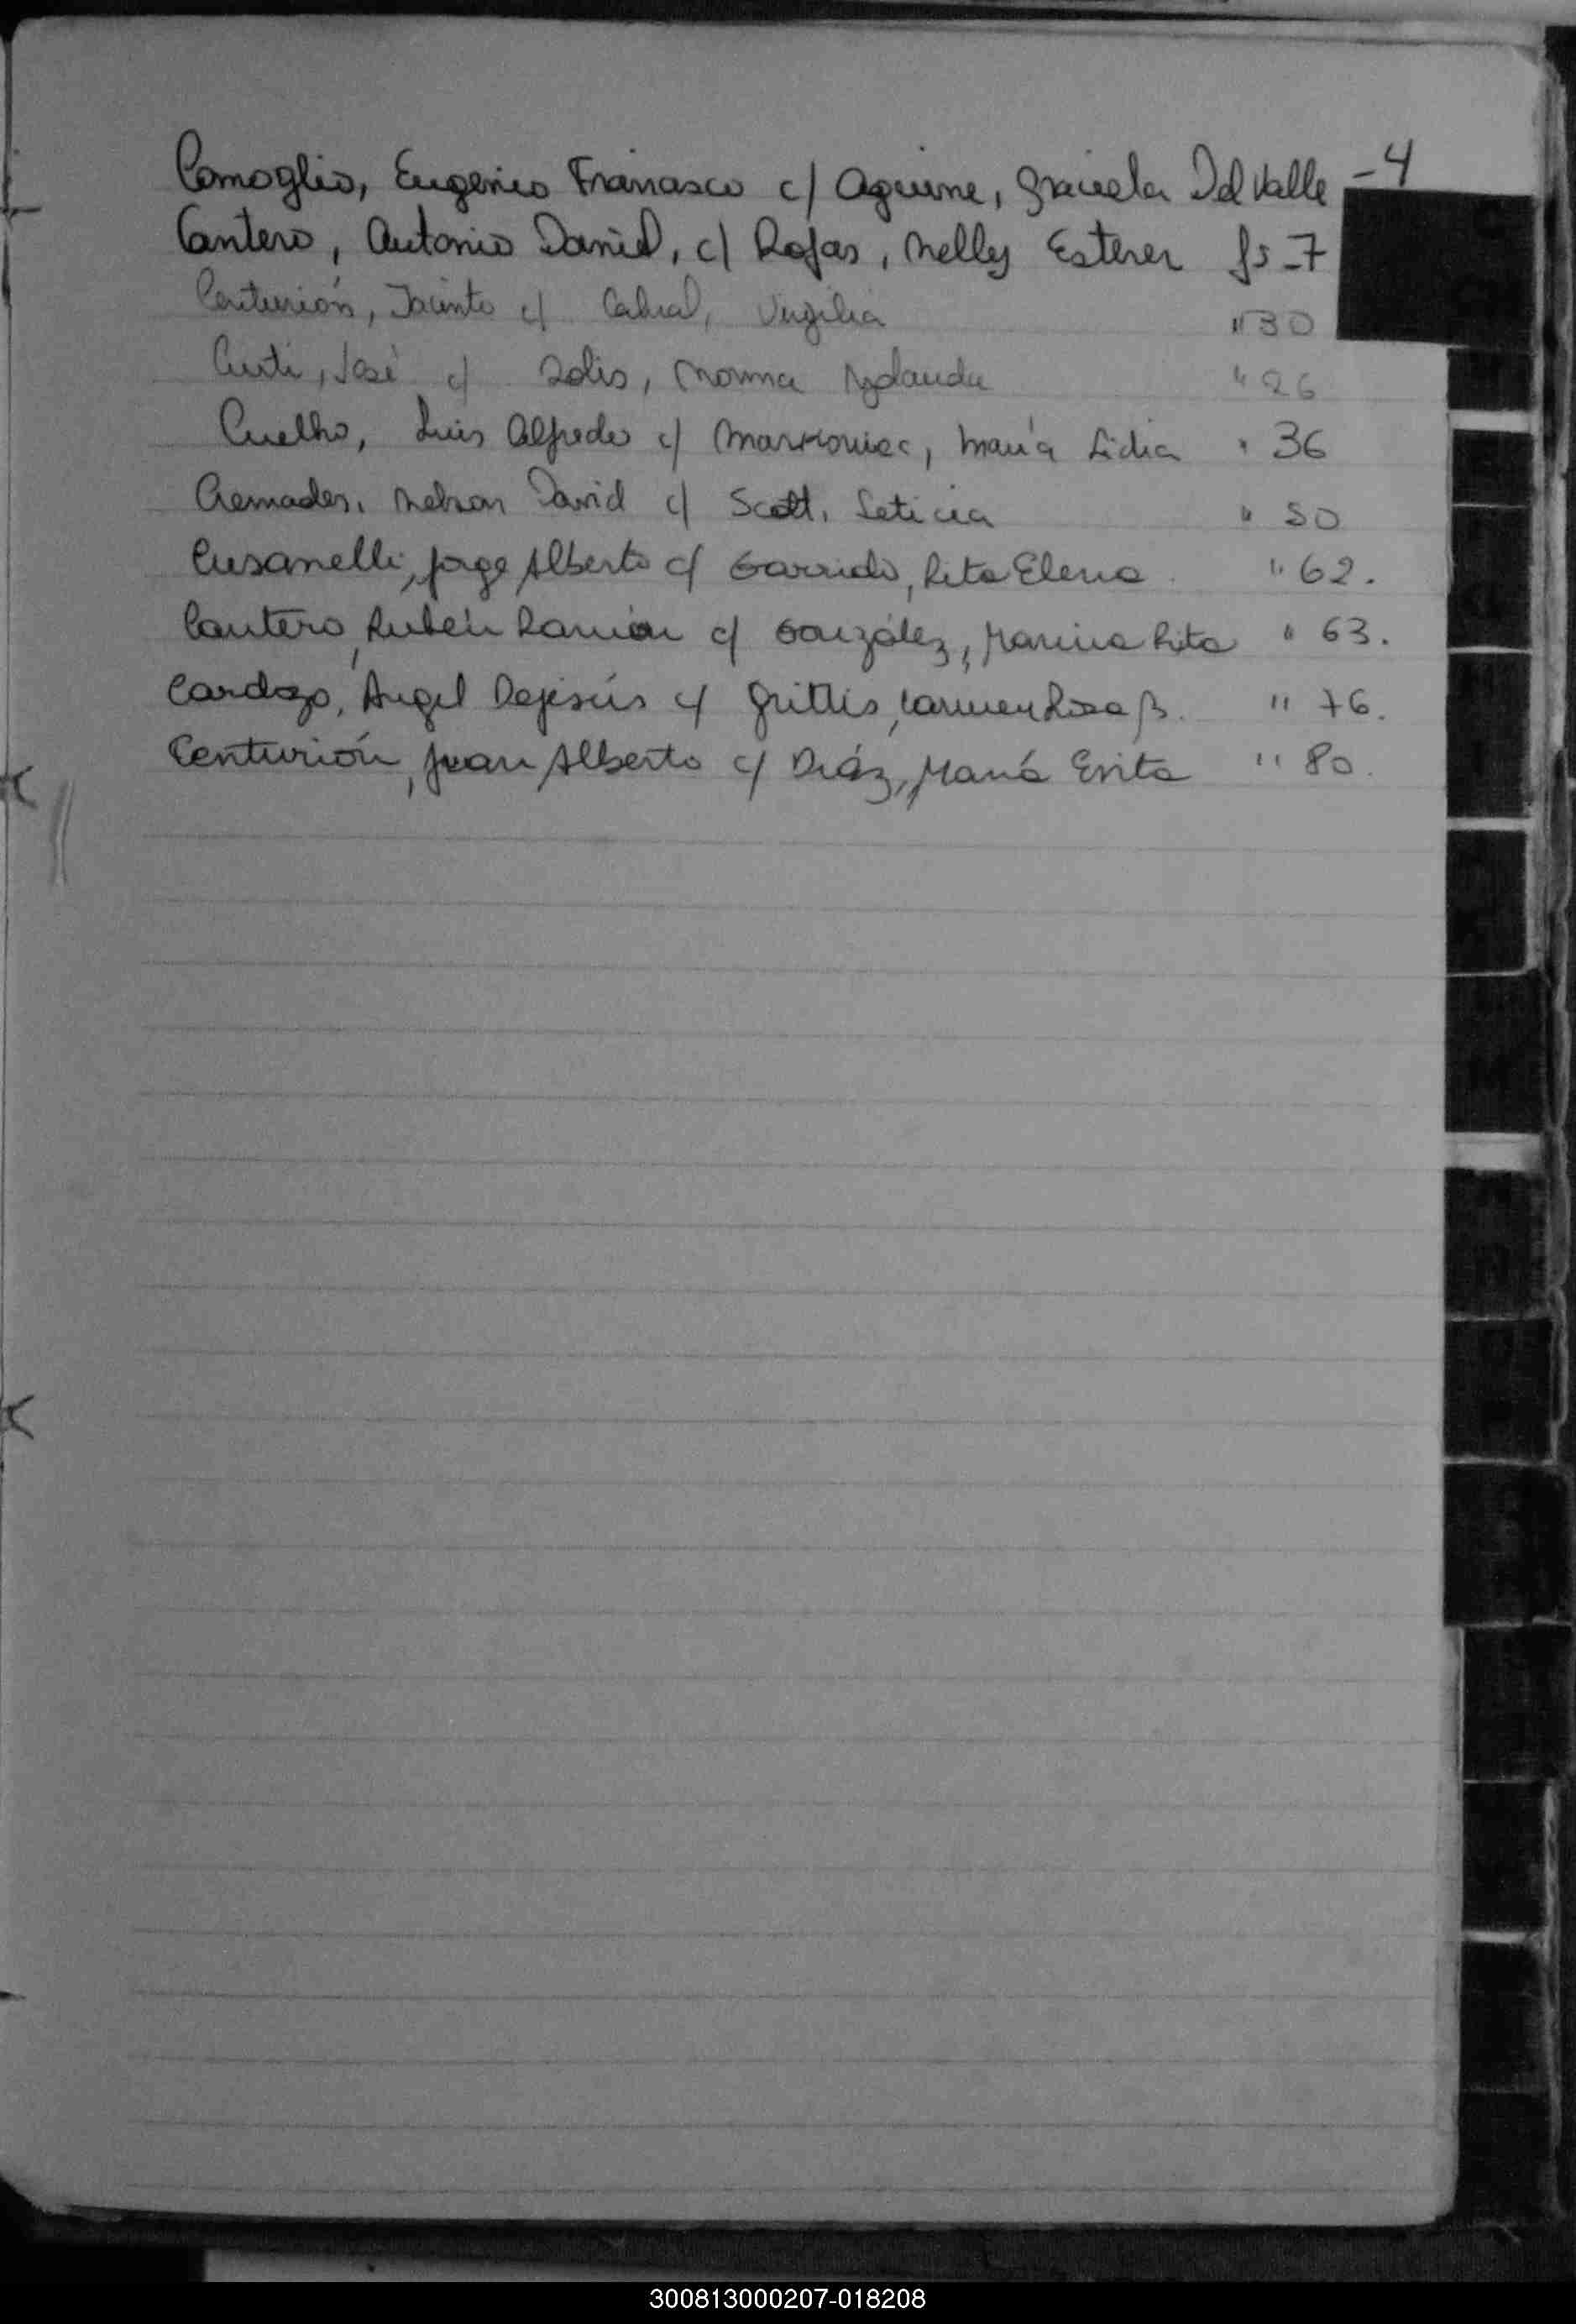 Comoglio, Eugenio Francisco c/ Aguirre, Graciela Del Valle - 4
Cantero, Antonio Daniel, c/ Rojas, Nelly Ester fs - 7
Centurión, Jacinto c/ Cabral, Virgilia " 30
Curti, José c/ Solis, Norma " 26
Cuelho, Luis Alfredo c/ María Lidia " 36
Cremades, Nelson David c/ Scott, Leticia " 50
Cusanelli, Jorge Alberto c/ Garrido, Rita Elena " 62.
Cantero, Rubén Ramón c/ González, Marina Rita " 63.
Cardozo, Angel Dejesús c/ Grittis, Carmen Rosa B. " 76.
Centurión, Juan Alberto c/ Diáz, María Evita " 80.
300813000207-018208